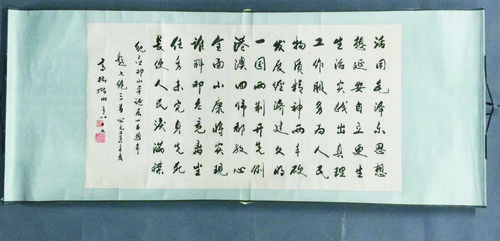 活用毛泽东思想
延安自立更生
生活实践出真理
工作服务为人民
物质精神两手硬
发展经济
一国两制开先例
港澳回归都放心
全面小康实现
谁料邓老竟离尘
任务未完身先死
长使人民泪满襟
纪念邓小平诞辰一百周年
七绝三首